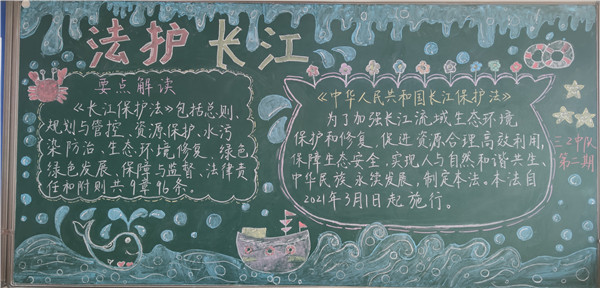 法护长江
要点解读
《长江保护法》包括总则、
规划与管控、资源保护、水污
染防治、生态环境修复、绿色
绿色发展、保障与监督、法律责
任和附则共9章96条。
《中华人民共和国长江保护法》
为了加强长江流域生态环境
保护和修复,促进资源合理高效利用,
保障生态安全,实现人与自然和谐共生、
中华民族永续发展,制定本法。本法自
2021年3月1日起施行。
三2中队
第二期